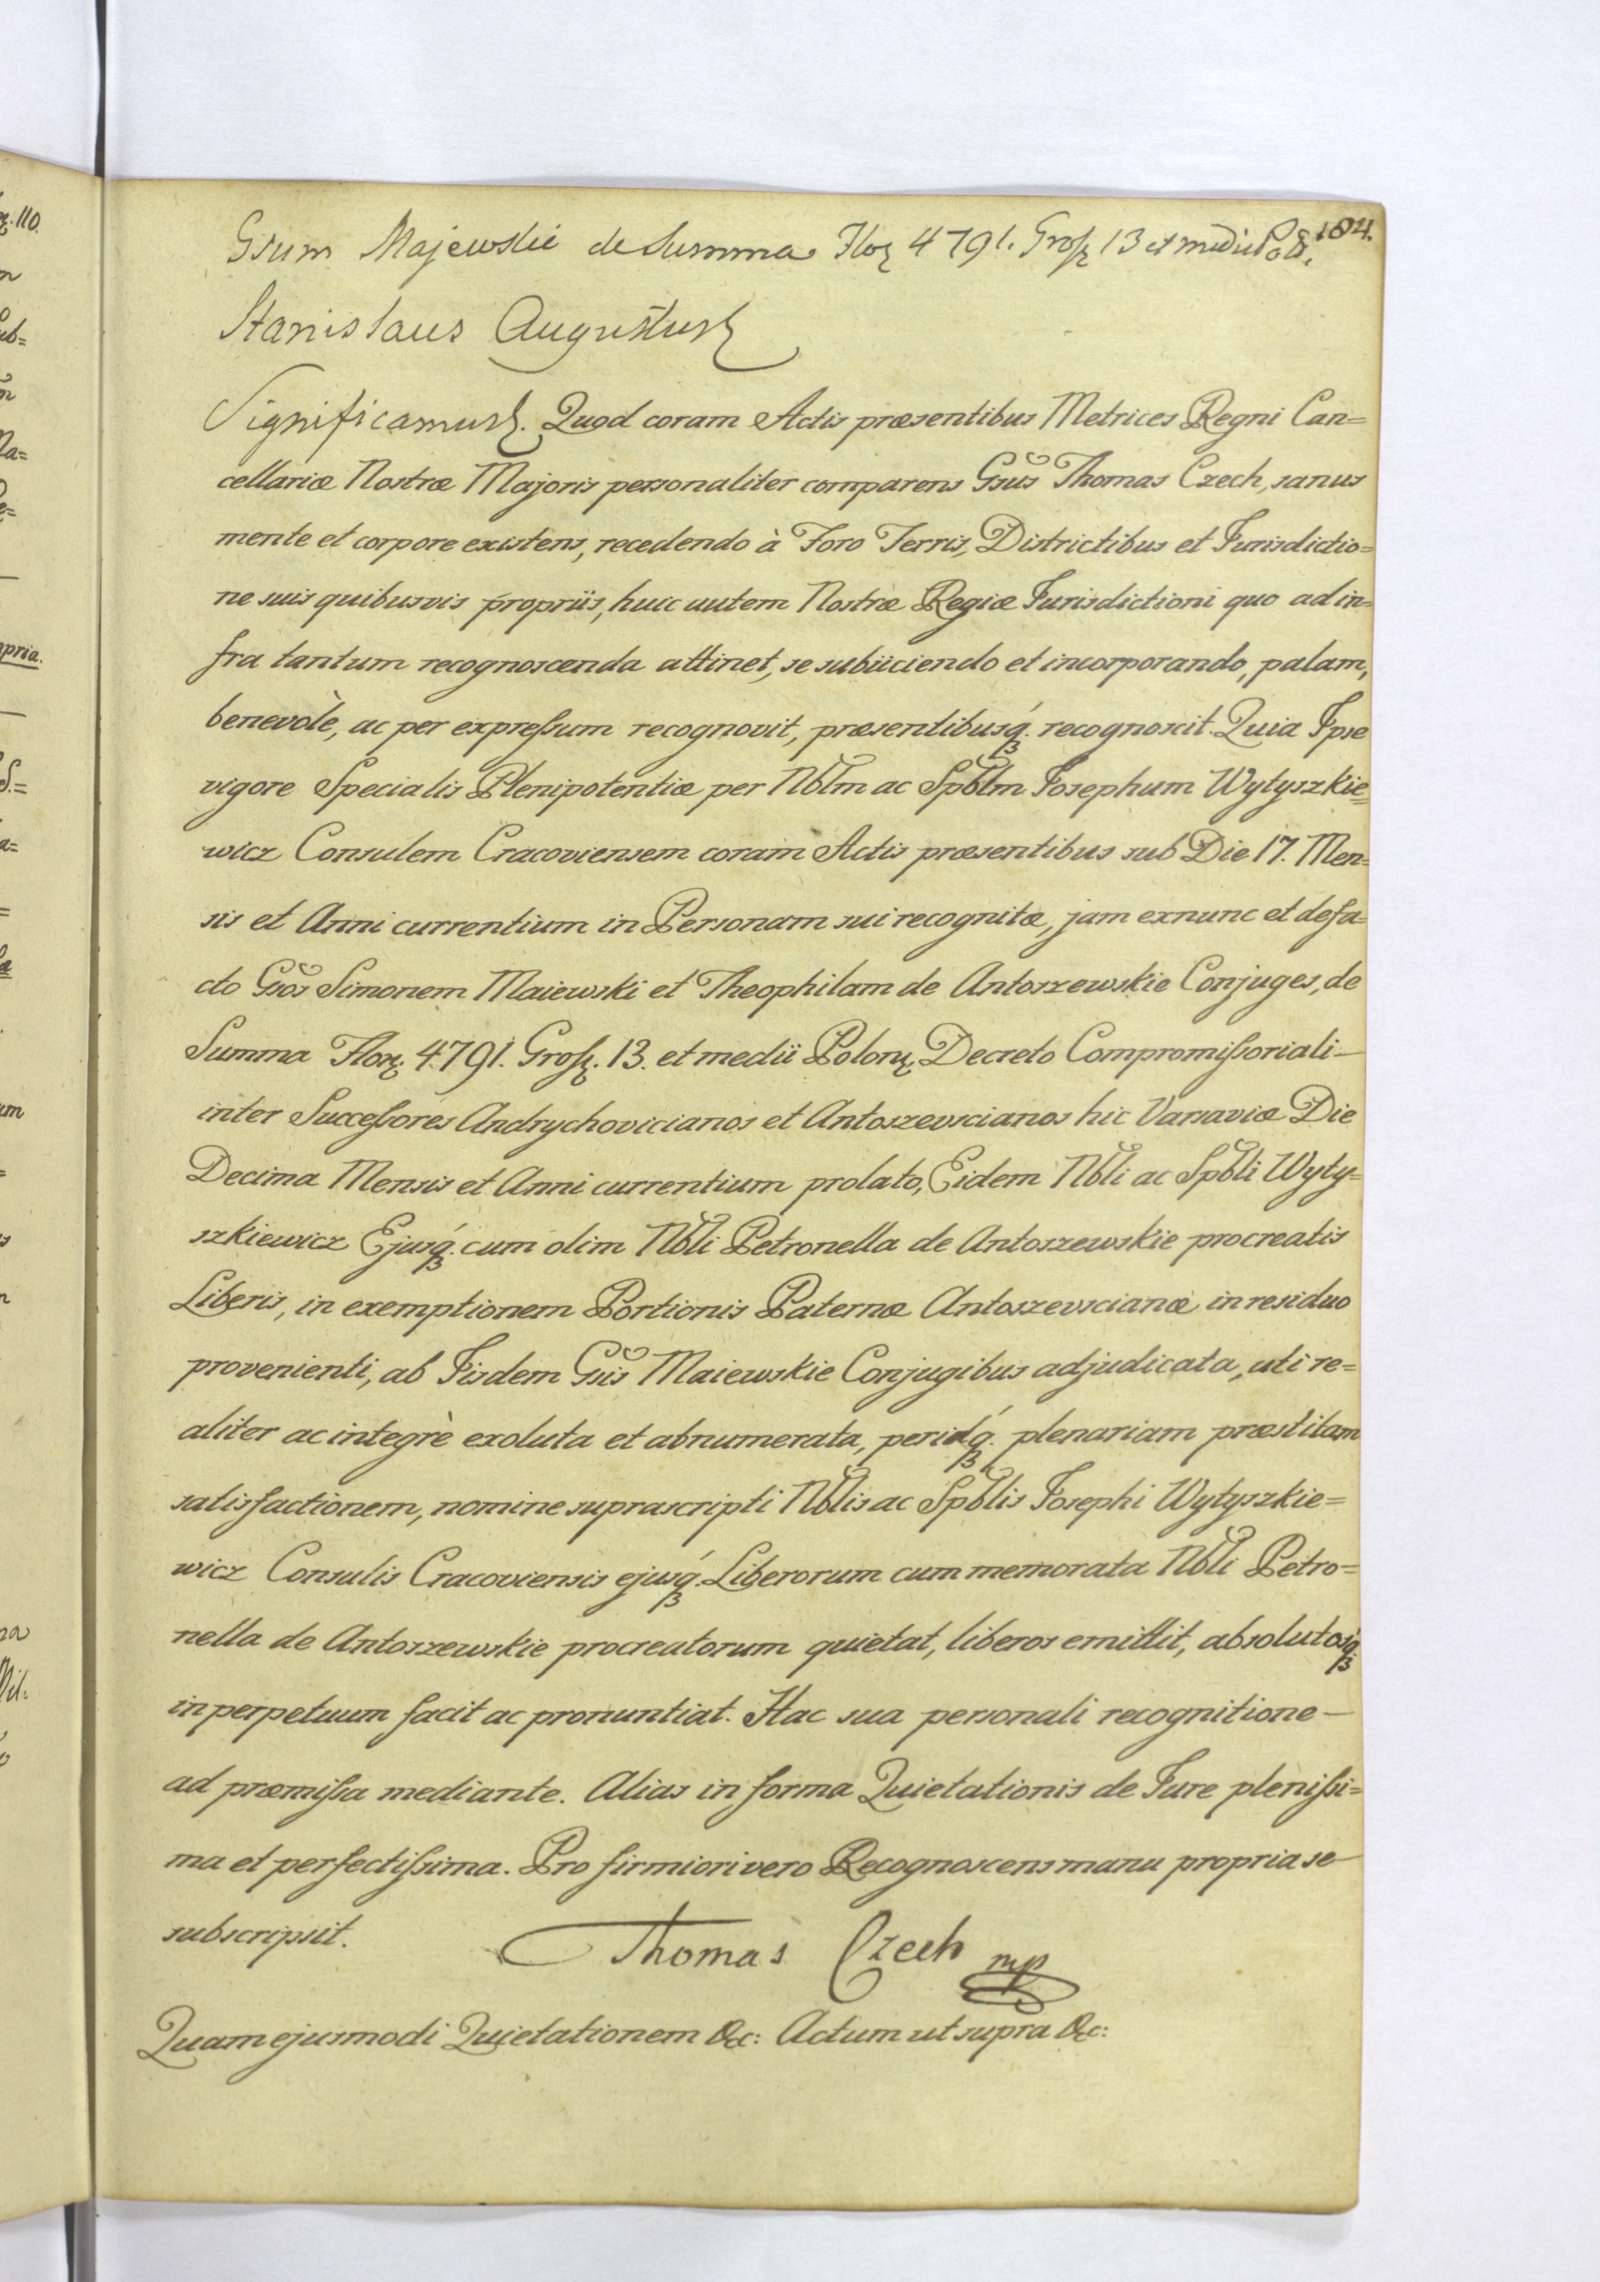 184.
Gsum Majewskie de Summa Flor 4791. Gross 13 et medii Pol.
Stanislaus Augustus
Significamus. Quod coram Actis præsentibus Metrices Regni Can=
cellariæ Nostræ Majoris personaliter comparens Gsus Thomas Czech, sanus
mente et corpore existens, recedendo à Foro Terris, Districtibus et Jurisdictio=
ne suis quibusvis propriis, huic autem Nostræ Regiæ Jurisdictioni quo ad in=
fra tantum recognoscenda attinet, se subiiciendo et incorporando, palam,
benevolè, ac per expressum recognovit, præsentibusq́. recognoscit. Quia Ipse
vigore Specialis Plenipotentiæ per Nblm ac Spblm Josephum Wytyszkie=
wicz Consulem Cracoviensem coram Actis præsentibus sub Die 17. Men=
sis et Anni currentium in Personam sui recognitæ, jam exnunc et defa=
cto Gsos Simonem Maiewski et Theophilam de Antoszewskie Conjuges, de
Summa Flor. 4791. Gross. 13. et medii Polon. Decreto Compromissoriali
inter Successores Andrychovicianos et Antoszevscianos hic Varsaviæ Die
Decima Mensis et Anni currentium prolato, Eidem Nbli ac Spbli Wyty=
szkiewicz Ejusq́. cum olim Nbli Petronella de Antoszewskie procreatis
Liberis, in exemptionem Portionis Paternæ Antoszevscianæ in residuo
provenienti, ab Iisdem Gsis Maiewskie Conjugibus adjudicata, uti re=
aliter ac integrè exoluta et abnumerata, peridq́. plenariam præstitam
satisfactionem, nomine suprascripti Nblis ac Spblis Josephi Wytyszkie=
wicz Consulis Cracoviensis ejusq́. Liberorum cum memorata Nbli Petro=
nella de Antoszewskie procreatorum quietat, liberos emittit, absolutosq́
in perpetuum facit ac pronuntiat. Hac sua personali recognitione
ad præmissa mediante. Alias in forma Quietationis de Jure plenissi=
ma et perfectissima. Pro firmiori vero Recognoscens manu propria se
subscripsit. Thomas Czech mp
Quam ejusmodi Quietationem &c: Actum ut supra &c: